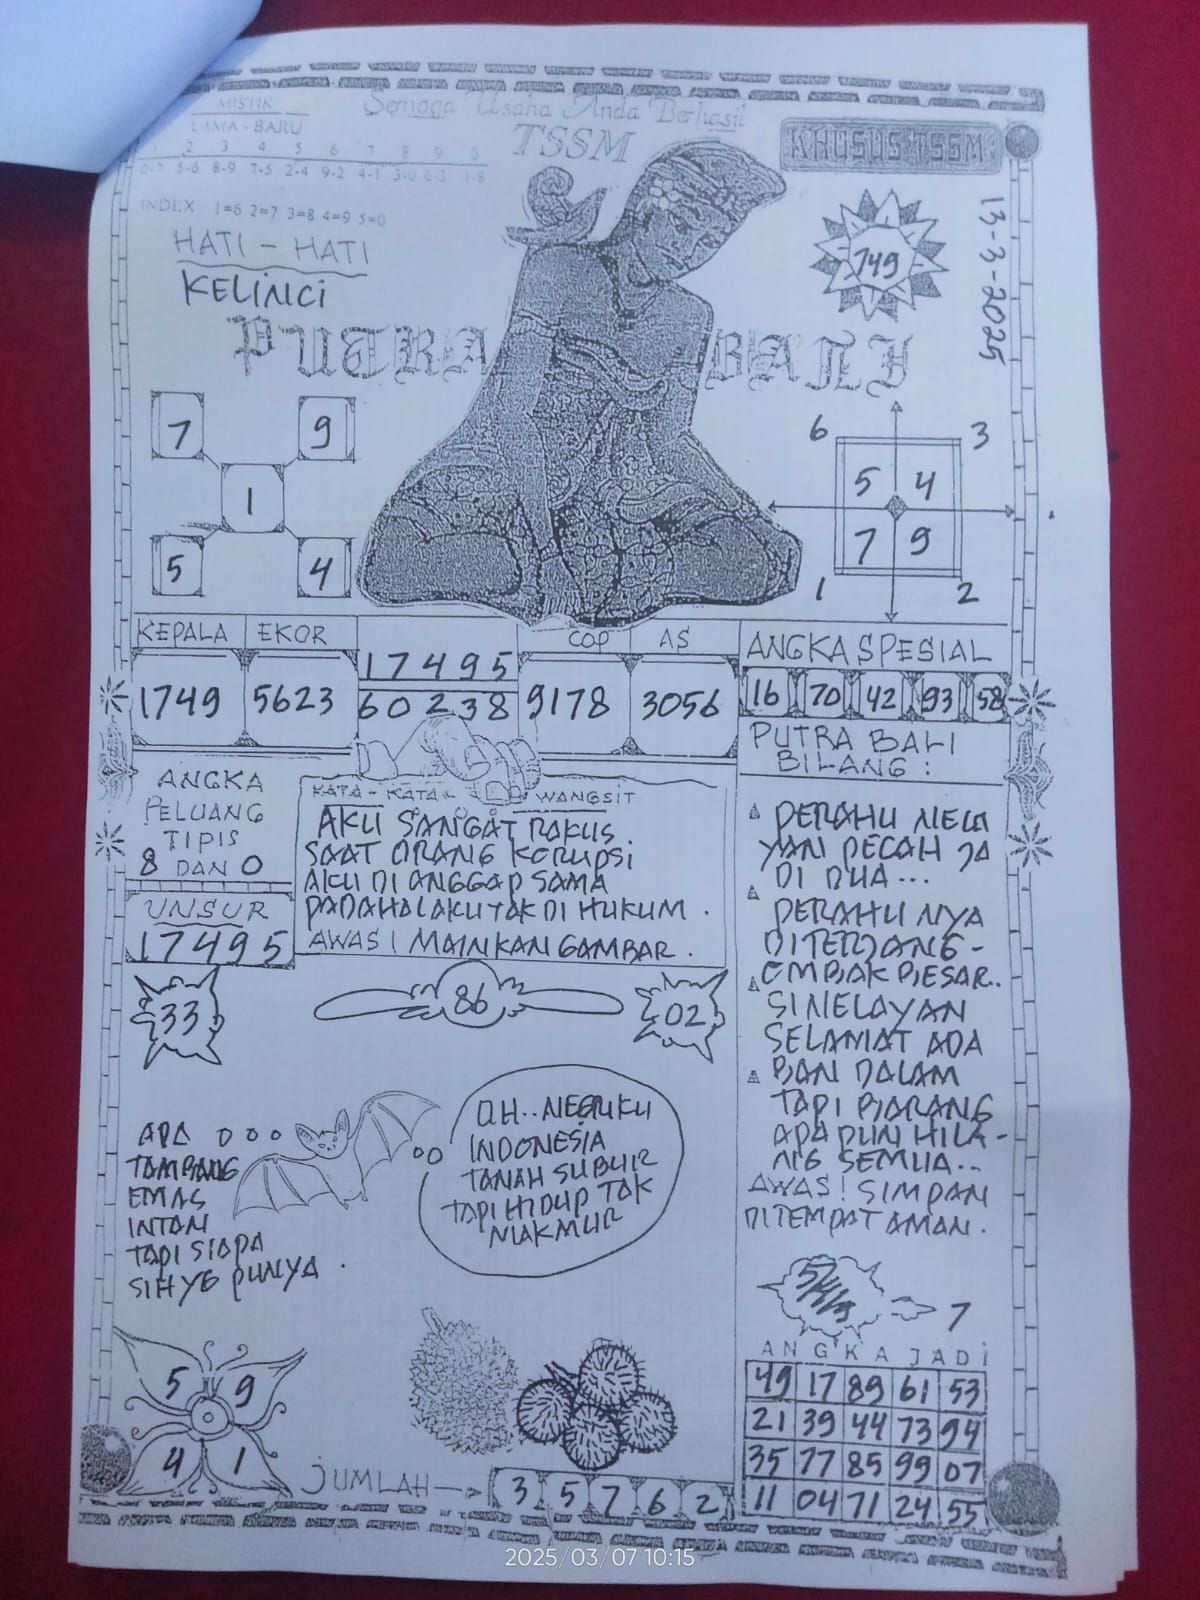 MISTIK
Semoga Usaha Anda Berhasil
LAMA - BARU
TSSM
KHUSUS TSSM
2 3 4 5 6 7 8 9 0
0-7 5-6 8-9 7-5 2-4 9-2 4-1 3-0 6-3 1-8
INDEX 1=6 2=7 3=8 4=9 5=0
HATI - HATI
KELINCI
749
13-3-2025
PUTRA BALI
7 9
1
5 4
6 3
5 4
7 9
1 2
KEPALA EKOR
1749 5623
17495
60238
COP AS
9178 3056
ANGKA SPESIAL
16 70 42 93 58
PUTRA BALI
BILANG :
ANGKA
PELUANG
TIPIS
8 DAN 0
UNSUR
17495
KATA - KATA WANGSIT
AKU SANGAT RAKUS
SAAT ORANG KORUPSI
AKU DI ANGGAP SAMA
PADAHAL AKU TAK DI HUKUM .
AWAS ! MAINKAN GAMBAR .
PERAHU NELA
YAN PECAH JA
DI DUA ...
PERAHU NYA
DITERJANG -
OMBAK BESAR..
SI NELAYAN
SELAMAT ADA
BAN DALAM
TAPI BARANG
APA PUN HILA -
NG SEMUA ...
AWAS ! SIMPAN
DI TEMPAT AMAN .
33
86
02
ADA
TAMBANG
EMAS
INTAN
TAPI SIAPA
SIH YG PUNYA .
OH.. NEGRIKU
INDONESIA
TANAH SUBUR
TAPI HIDUP TAK
MAKMUR
7
ANGKA JADI
49 17 89 61 53
21 39 44 73 94
35 77 85 99 07
11 04 71 24 55
5 9
4 1
JUMLAH
3 5 7 6 2
2025/03/07 10:15